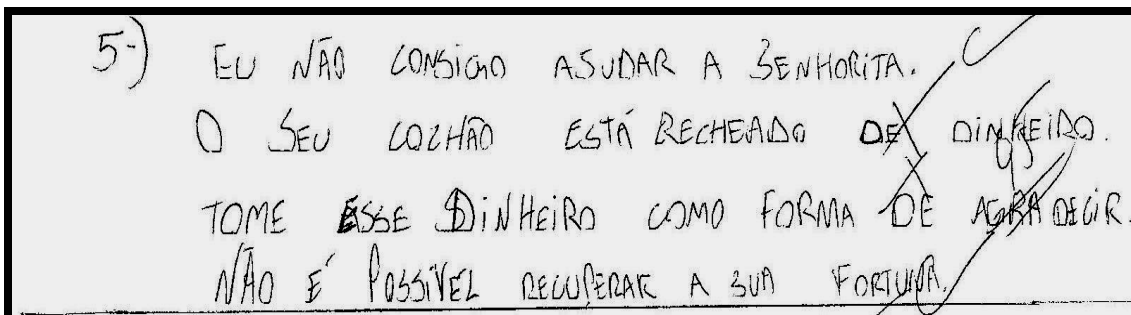 5-) EU NÃO CONSIGO AJUDAR A SENHORITA.
O SEU COLCHÃO ESTÁ RECHEADO DE DINHEIRO.
TOME ESSE DINHEIRO COMO FORMA DE AGRADECIR.
NÃO É POSSÍVEL RECUPERAR A SUA FORTUNA.